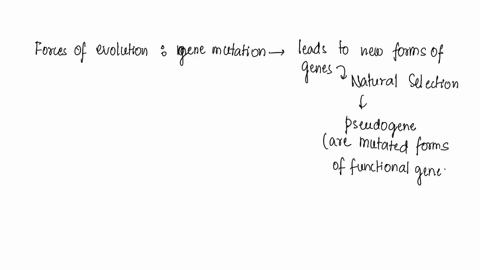 Forces of evolution : gene mutation → leads to new forms of
genes
Natural Selection
↓
pseudogene
(are mutated forms
of functional gene.